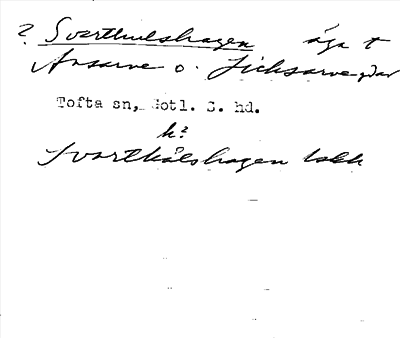 ? Svarthulshagen äga t
Ansarve o. Ticksarve gdar
Tofta sn, Gotl. S. hd.
h?
Svarthålshagen